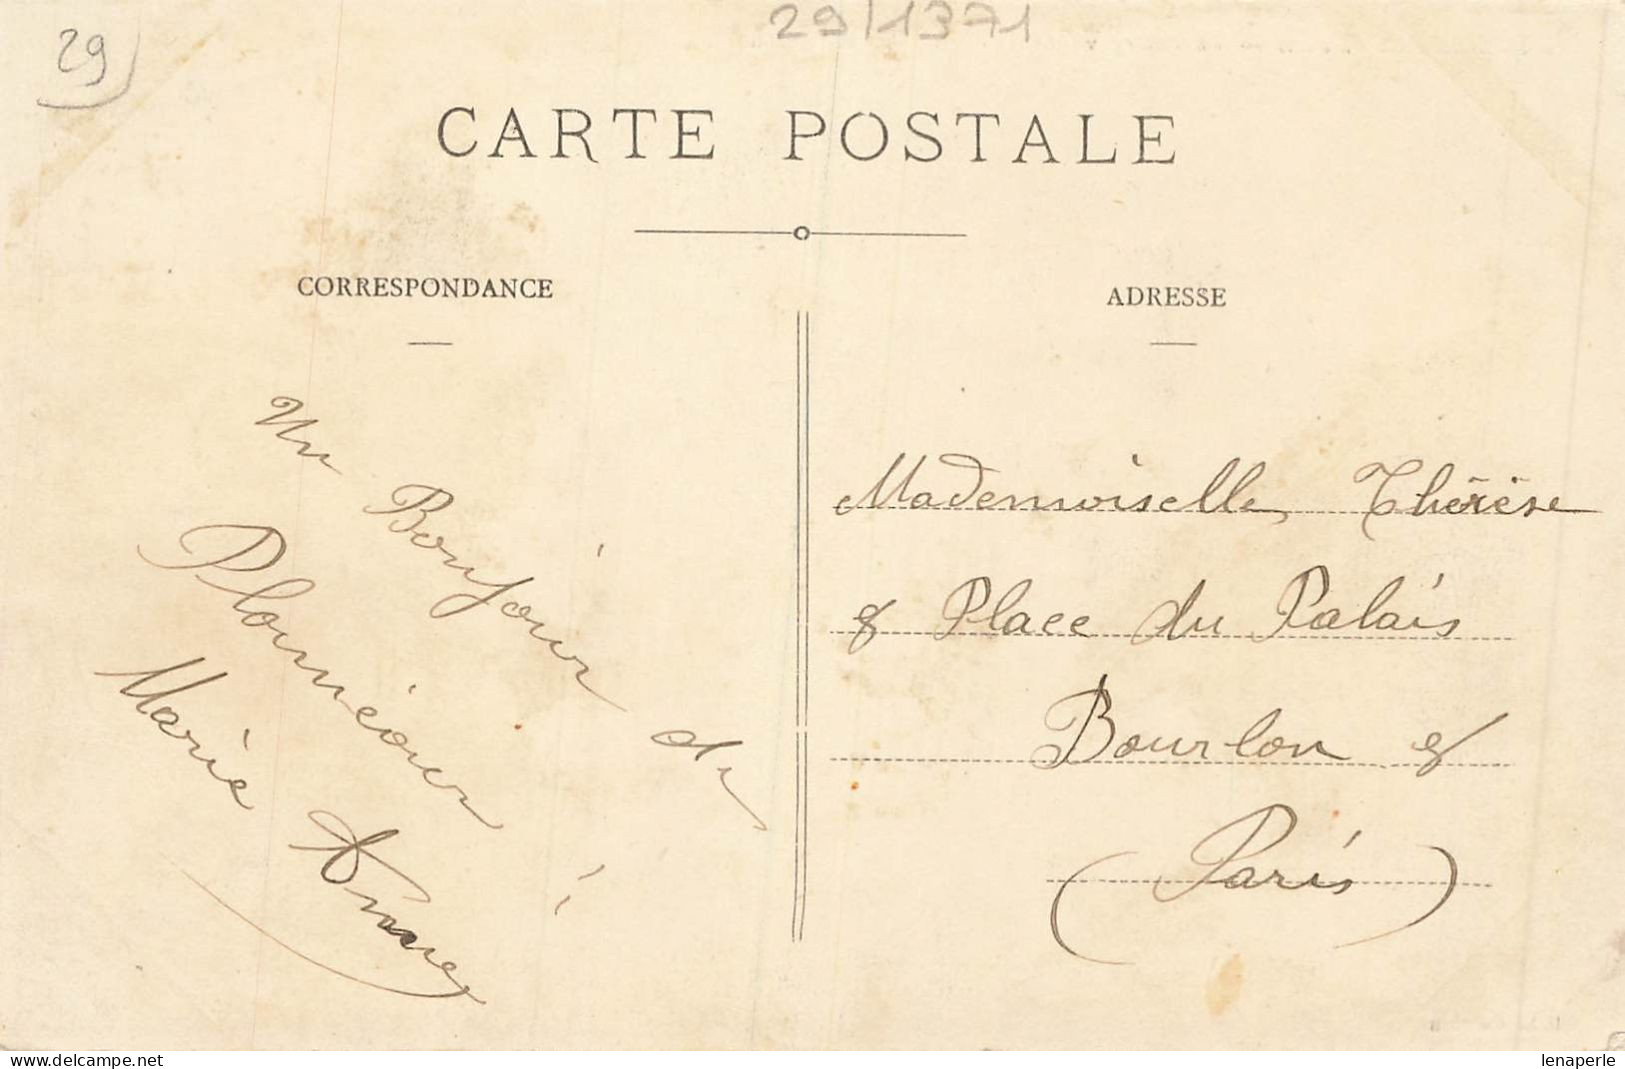 29
29/1371
CARTE POSTALE
CORRESPONDANCE
ADRESSE
Un Bonjour de
Plounéour
Marie Anne
Mademoiselle Thérèse
8 Place du Palais
Bourbon 8
(Paris)
www.delcampe.net
lenaperle